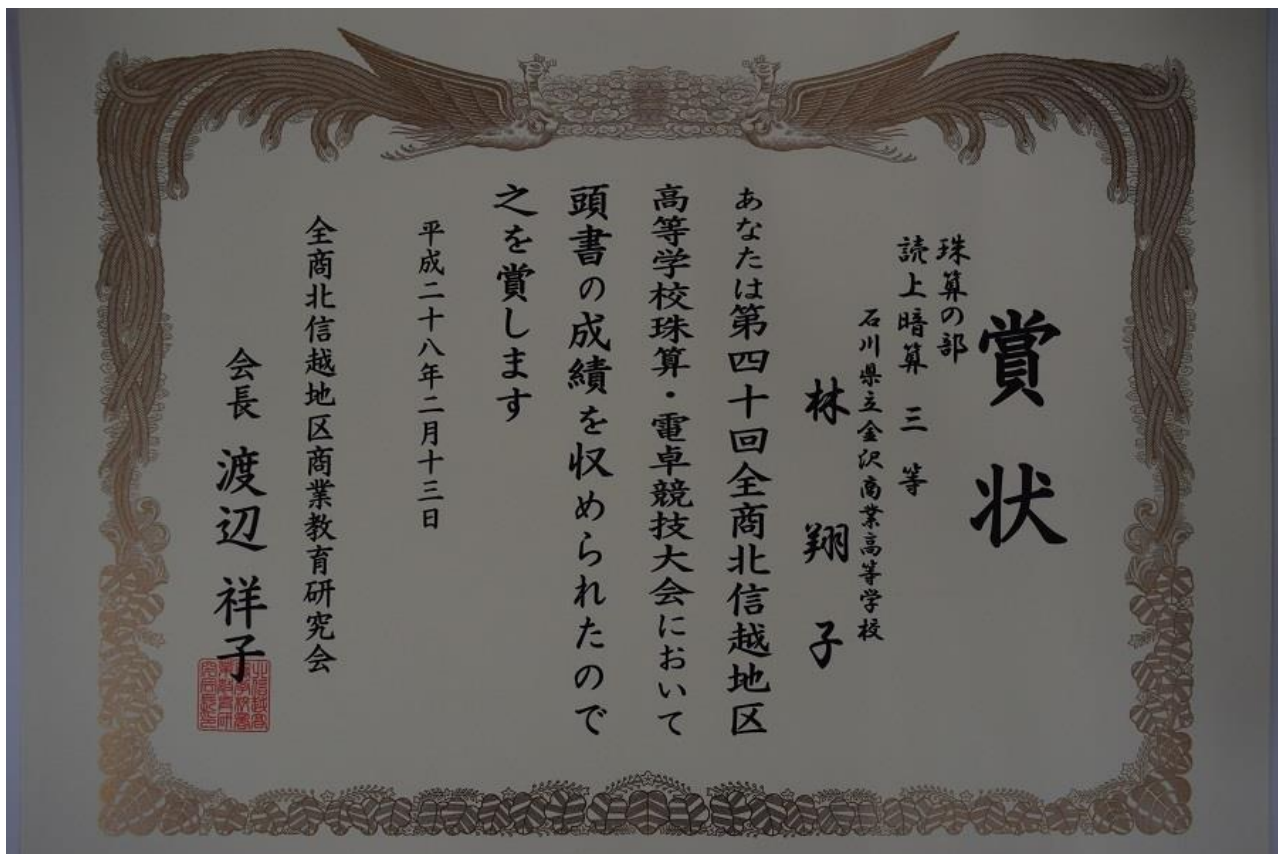 賞状
珠算の部
読上暗算 三等
石川県立金沢商業高等学校
林 翔子
あなたは第四十回全商北信越地区
高等学校珠算・電卓競技大会において
頭書の成績を収められたので
之を賞します
平成二十八年二月十三日
全商北信越地区商業教育研究会
会長 渡辺 祥子